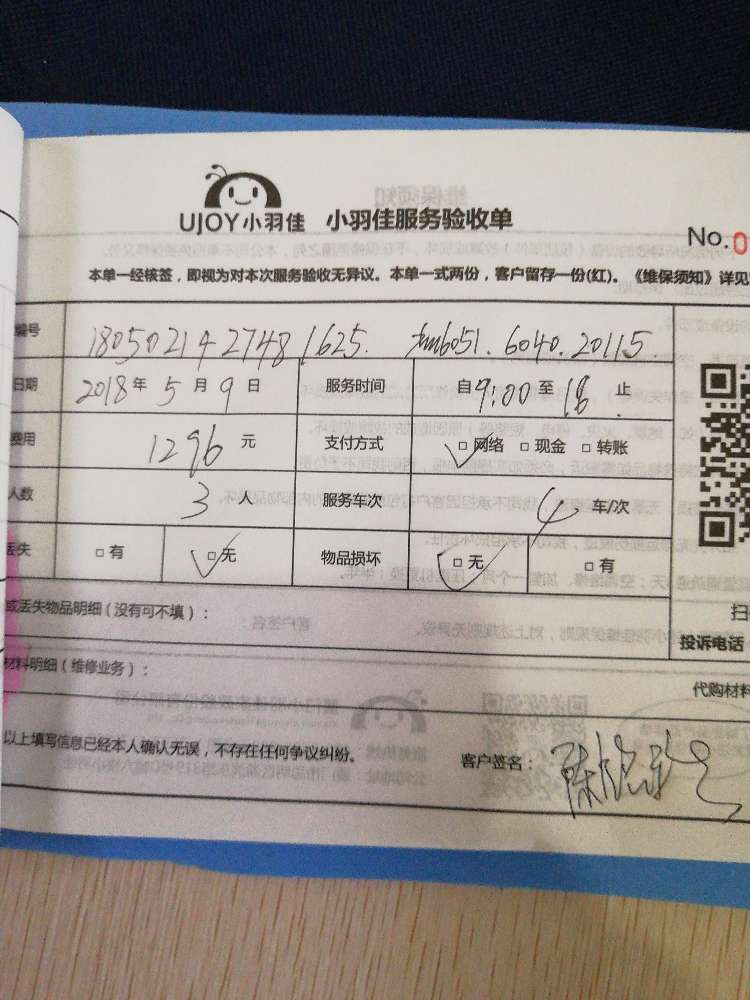 UJOY小羽佳 小羽佳服务验收单
No.0
本单一经核签，即视为对本次服务验收无异议。本单一式两份，客户留存一份(红)。《维保须知》详见
编号 180502142748 1625. 6051.6040.20115
日期 2018年5月9日 服务时间 自9:00至18止
费用 1296元 支付方式 □网络 □现金 □转账
人数 3人 服务车次 4车/次
丢失 □有 □无 物品损坏 □无 □有
或丢失物品明细(没有可不填)：
扫
投诉电话
材料明细(维修业务)：
代购材料
以上填写信息已经本人确认无误，不存在任何争议纠纷。
客户签名：